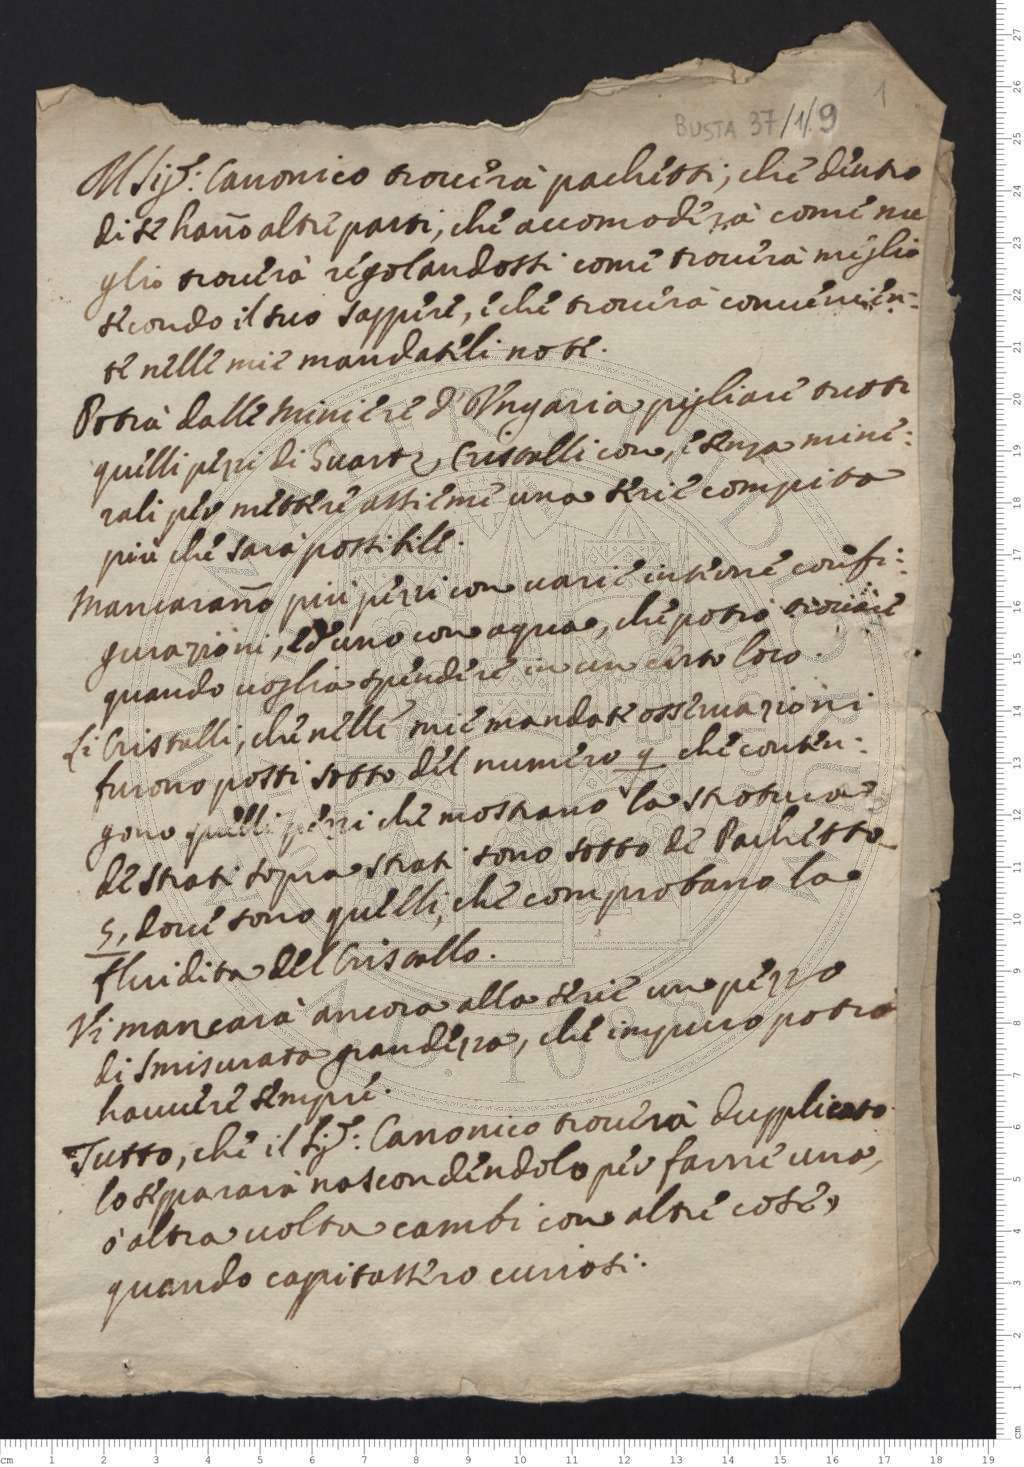 1
BUSTA 37/1/9
Il Sig.r: Canonico trouerà pachetti, che dentro
di se hano altre parti, che accomoderà come me
glio trouerà regolandossi come trouerà meglio
secondo il suo sappere, e che trouerà conuenien:
te nelle mie mandateli note.
Potrà dalle Miniere d'Ungaria pigliare tutti
quelli pezzi di Suartz, Cristalli con, e senza mine:
rali per mettere assieme una serie compita
più che sarà possibile.
Mancarano più pezzi con uarie interne confi:
gurazioni, ed uno con aqua, che potrò trouare
quando uoglia spendere in un certo loco.
Li Cristalli, che nelle mie mandate osseruazioni
furono posti sotto del numero 9 che conten:
gono quelli pezzi che mostrano la strotura
de strati sopra strati sono sotto de Pachetto
5, doue sono quelli, che comprobano la
fluidita del Cristallo.
Vi mancarà ancora alla serie un pezzo
di smisurata grandezza, che impuro potrò
hauuere sempre.
Tutto, che il Sig.r: Canonico trouerà dupplicato
lo separarà nascondendolo per farne una,
ò altra uolta cambi con altre cose,
quando capitassero curiosi.